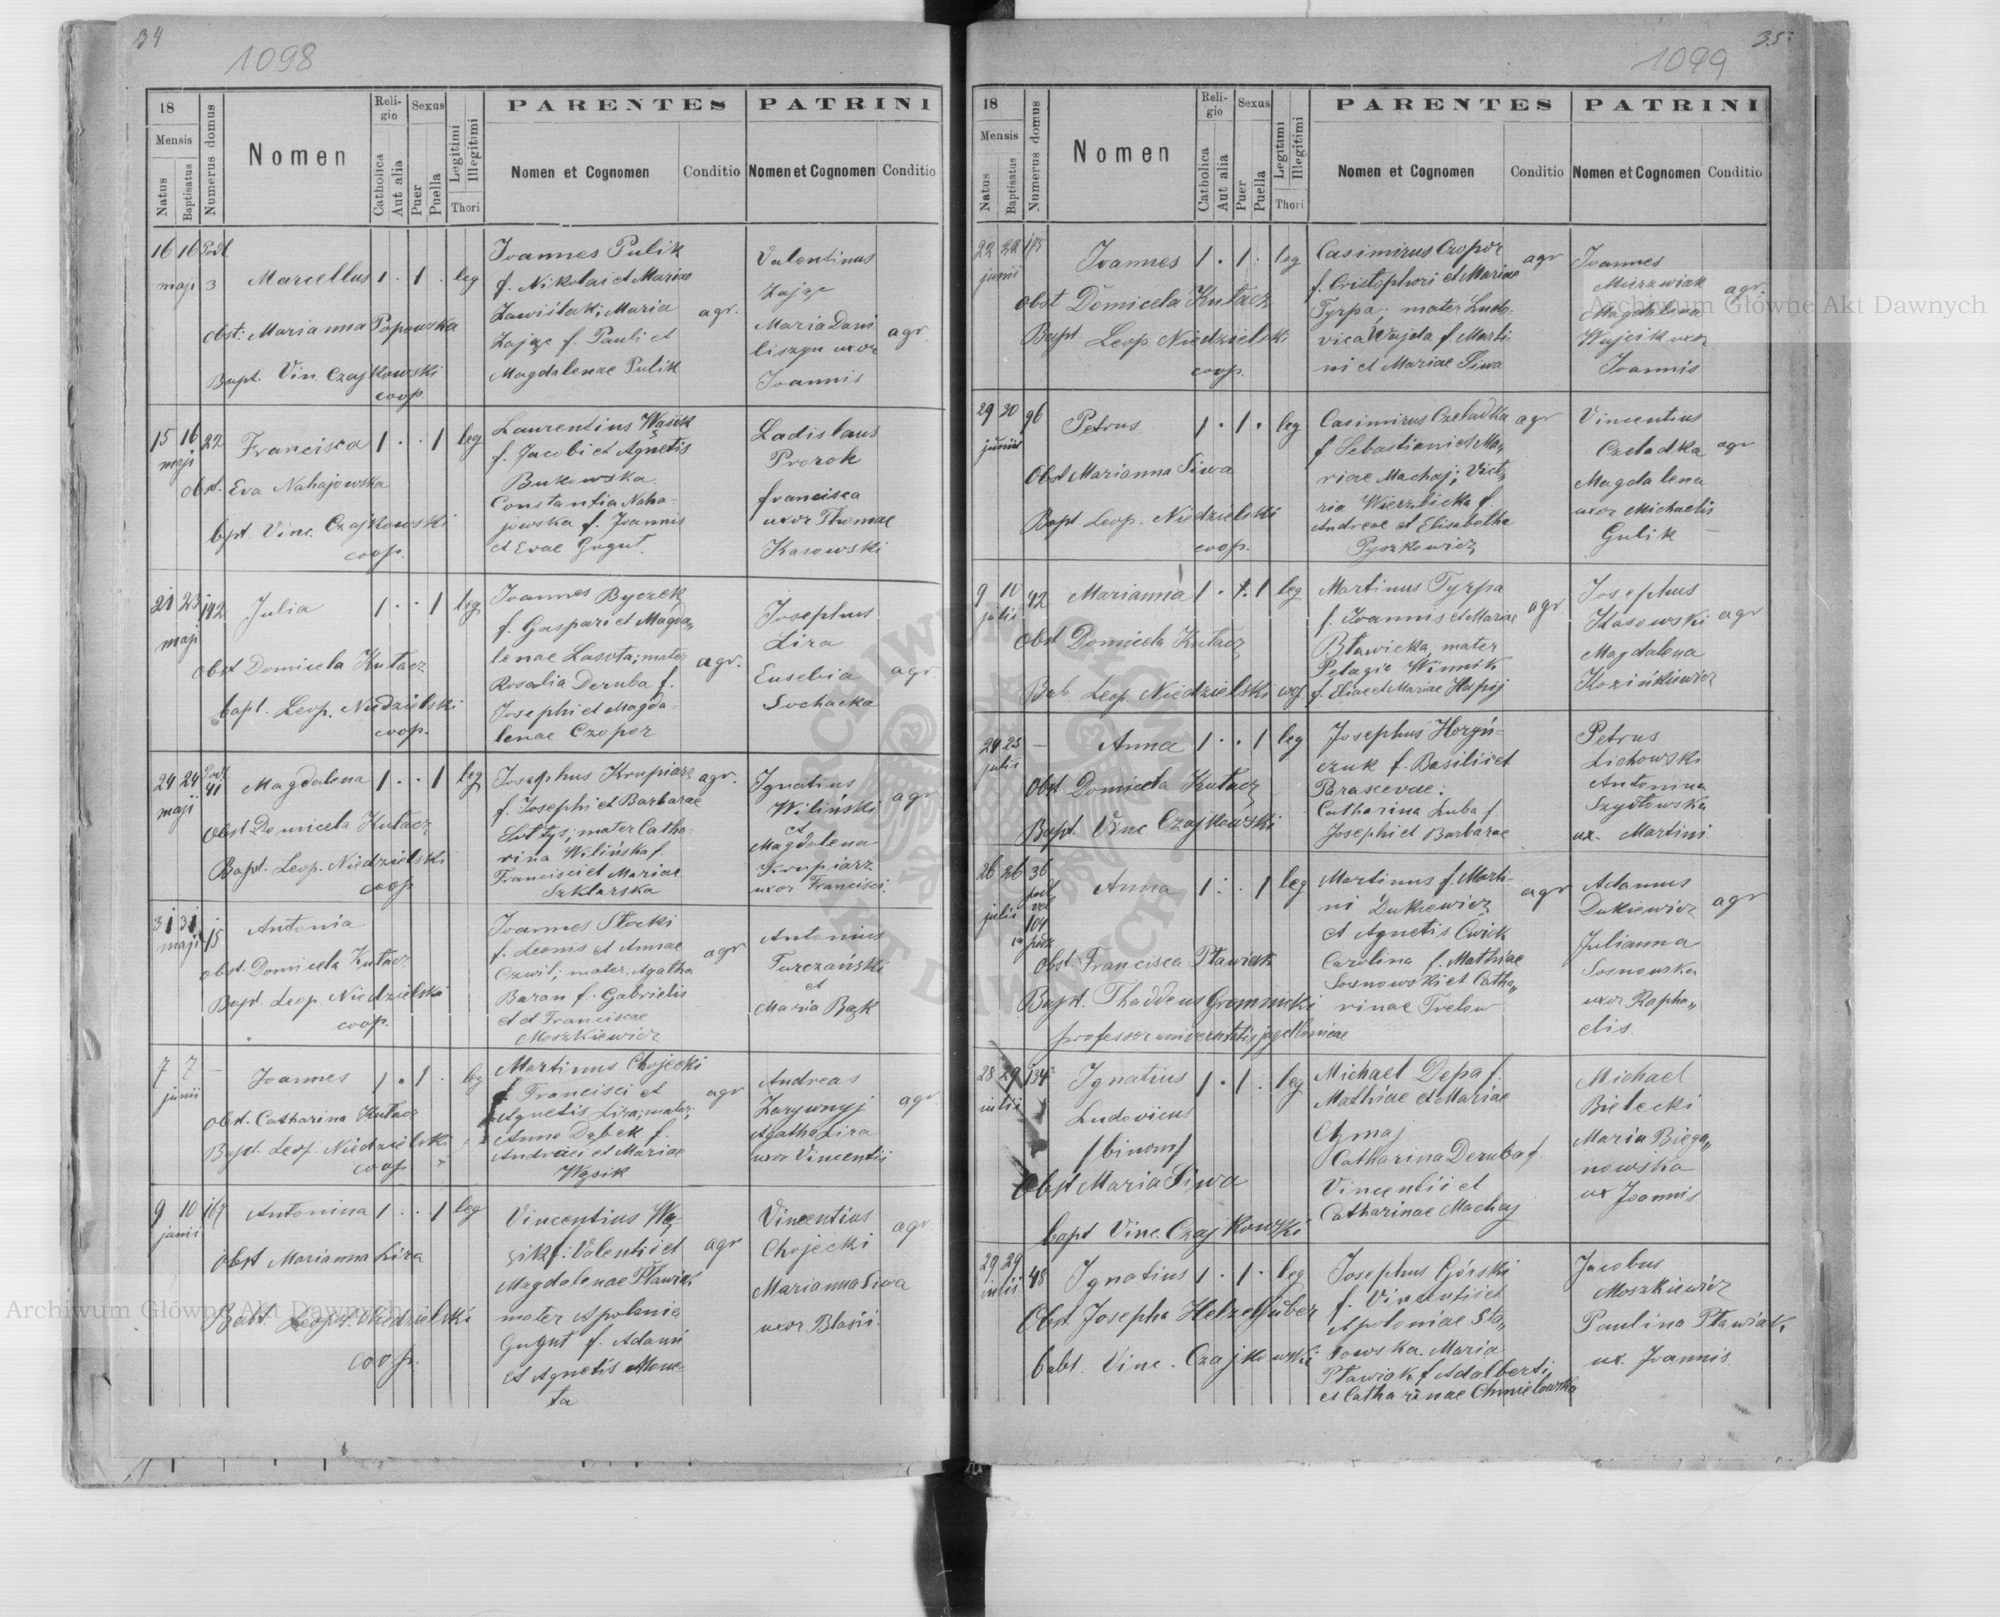 34
1098
18
Mensis
Natus
Baptisatus
Numerus domus
Nomen
Religio
Catholica
Aut alia
Sexus
Puer
Puella
Legitimi
Illegitimi
Thori
PARENTES
Nomen et Cognomen
Conditio
PATRINI
Nomen et Cognomen
Conditio
16 16
maji 3
Marcellus 1 . 1 . leg
Obst: Marianna Popowska
Bapt. Vin. Czajkowski
coop.
Joannes Pulik
f. Nikolai et Mariae
Zawiślak; Maria
Zając f. Pauli et
Magdalenae Pulik
agr.
Valentinus
Zając
Maria Dani
liszyn uxor
Joannis
agr.
15 16 22
maji
Francisca 1 . . 1 leg
obst. Eva Nahajowska
bpt. Vinc. Czajkowski
coop.
Laurentius Wąsik
f. Jacobi et Agnetis
Bukowska
Constantia Naha-
jowska f. Joannis
et Evae Gugut.
Ladislaus
Prorok
francisca
uxor Thomae
Kasowski
21 23 142
maji
Julia 1 . . 1 leg
Obst Domicela Kutacz
bapt. Leop. Niedzielski
coop.
Joannes Byczek
f. Gaspari et Magda„
lenae Lasota; mater
Rosalia Deruba f.
Josephi et Magda-
lenae Czopor
agr.
Josephus
Lira
Eusebia
Sochacka
agr.
24 24 41
maji
Magdalena 1 . . 1 leg
Obst Domicela Kutacz
Bapt. Leop. Niedzielski
coop
Josephus Krupiarz
f. Josephi et Barbarae
mater Catha-
rina Wilińska f.
Francisci et Mariae
Szklarska
agr.
Ignatius
Wiliński
et
Magdalena
Krupiarz
uxor Francisci.
agr
31 31 15
maji
Antonia
obst. Domicela Kutacz
Bapt. Leop Niedzielski
coop.
Joannes Stocki
f. Leonis et Annae
Czwil; mater. Agatha
Baran f. Gabrielis
et Franciscae
Moszkiewicz
agr
Antonius
Turczański
et
Maria Bąk
7 7 —
junii
Joannes 1 . 1 . leg
Obst. Catharina Kutacz
Bapt. Leop. Niedzielski
coop
Martinus Chojecki
f Francisci et
Agnetis Lira; mater.
Anna Dąbek f.
Andreei et Mariae
Wąsik
agr
Andreas
Zarywnyj
Agatha Lira
uxor Vincentii
agr.
9 10 167
junii
Antonina 1 . . 1 leg
Obst Marianna Lira
Babt. Leopo. Niedzielski
coop.
Vincentius Wą-
sik f. Valentii et
Magdalenae Pławiak
mater Apolonia
Gugut f. Adami
et Agnetis Mone-
ta
agr
Vincentius
Chojecki
Marianna Siwa
uxor Blasii.
agr.
35
1099
18
Mensis
Natus
Baptisatus
Numerus domus
Nomen
Religio
Catholica
Aut alia
Sexus
Puer
Puella
Legitimi
Illegitimi
Thori
PARENTES
Nomen et Cognomen
Conditio
PATRINI
Nomen et Cognomen
Conditio
22 22
junii
Joannes 1 . 1 . leg
Obst Domicela Kutacz
Bapt Leop. Niedzielski
coop.
Casimirus Czopor
f. Cristophori et Mariae
Tyrpa; mater Ludo-
vica Wajda f. Marti
ni et Mariae Siwa
agr
Joannes
Murzwiak
Magdalena
Wujcik uxor
Joannis
agr.
29 30 96
junii
Petrus 1 . 1 . leg
Obst Marianna Siwa
Bapt Leop. Niedzielski
coop.
Casimirus Czeladka
f Sebastiani et Ma„
riae Machaj; Victo
ria Wierzbicka f
Andreae et Elisabetha
Pyszkowicz
agr
Vincentius
Czeladka
Magdalena
uxor Michaelis
Gulik
agr
9 10 42
julii
Marianna 1 . 1 leg
Obst Domicela Kutacz
Bab. Leop. Niedzielski coop.
Martinus Tyrpa
f. Joannis et Mariae
Bławicka, mater
Pelagia Winnik
f. Eliae et Mariae
agr
Josephus
Kasowski
Magdalena
Kozińkiewicz
agr
24 25 —
julii
Anna 1 . . 1 leg
Obst Domicela Kutacz
Bapt. Vinc Czajkowski
Josephus Horyń-
czuk f. Basilii et
Parascevae:
Catharina Luba f.
Josephi et Barbarae
Petrus
Lichowski
Antonina
Szydłowska
ux. Martini
26 26 36
julii
104
Anna 1 . . 1 leg
Obst. Francisca Pławiak
Bapt. Thaddeus Gromnicki
professor universitatis jagellonicae
Martinus f. Marti-
ni Dukiewicz
et Agnetis Ćwiek
Carolina f. Mathiae
Sosnowski et Catha„
rinae Trelow
agr
Adamus
Dukiewicz
Julianna
Sosnowska
uxor Rapha„
elis.
agr
28 29 134
julii
Ignatius 1 . 1 . leg
Ludovicus
/binom/
Obst Maria Siwa
bapt Vinc. Czajkowski
Michael Depa f.
Mathiae et Mariae
Czmaj
Catharina Deruba f.
Vincentii et
Catharinae Machaj
Michael
Bielecki
Maria Biega„
nowska
ux Joannis
29 29 48
julii
Ignatius 1 . 1 . leg
Obst. Josepha Helzelhuber
babt. Vinc. Czajkowski
Josephus Górski
f. Vincentii et
Apoloniae Sta„
sowska. Maria
Pławiak f Adalberti
et Catharinae Chmielowska
Jacobus
Moszkiewicz
Paulina Pławiak
ux. Joannis.
Archiwum Główne Akt Dawnych
Archiwum Główne Akt Dawnych
ARCHIWUM GŁÓWNE AKT DAWNYCH